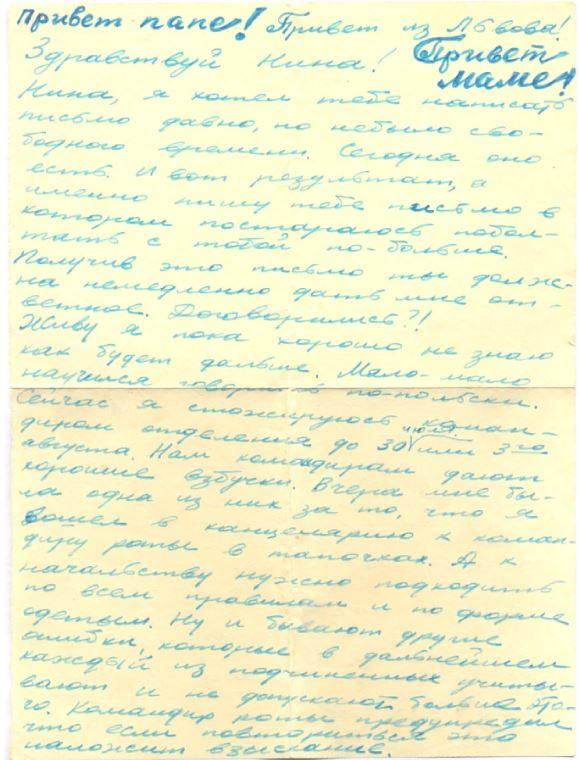 Привет папе! Привет из Львова!
Здравствуй Нина! Привет
маме!
Нина, я хотел тебе написать
письмо давно, но небыло сво-
бодного времени. Сегодня оно
есть. И вот результат, а
именно пишу тебе письмо в
котором постараюсь побол-
тать с тобой по-больше.
Получив это письмо ты долж-
на немедленно дать мне от-
ветное. Договорились?!
Живу я пока хорошо не знаю
как будет дальше. Мало-мало
научился говорить по-польски.
Сейчас я стажируюсь коман-
диром отделения до 30 июля или 3го
августа. Нам командирам дают
хорошие взбучки. Вчера мне бы-
ла одна из них за то, что я
вошел в канцелярию к коман-
диру роты в тапочках. А к
начальству нужно подходить
по всем правилам и по форме
одетым. Ну и бывают другие
ошибки, которые в дальнейшем
каждый из подчиненных учиты-
вают и не допускают больше это-
го. Командир роты предупредил
что если повториться это
наложит взыскание.